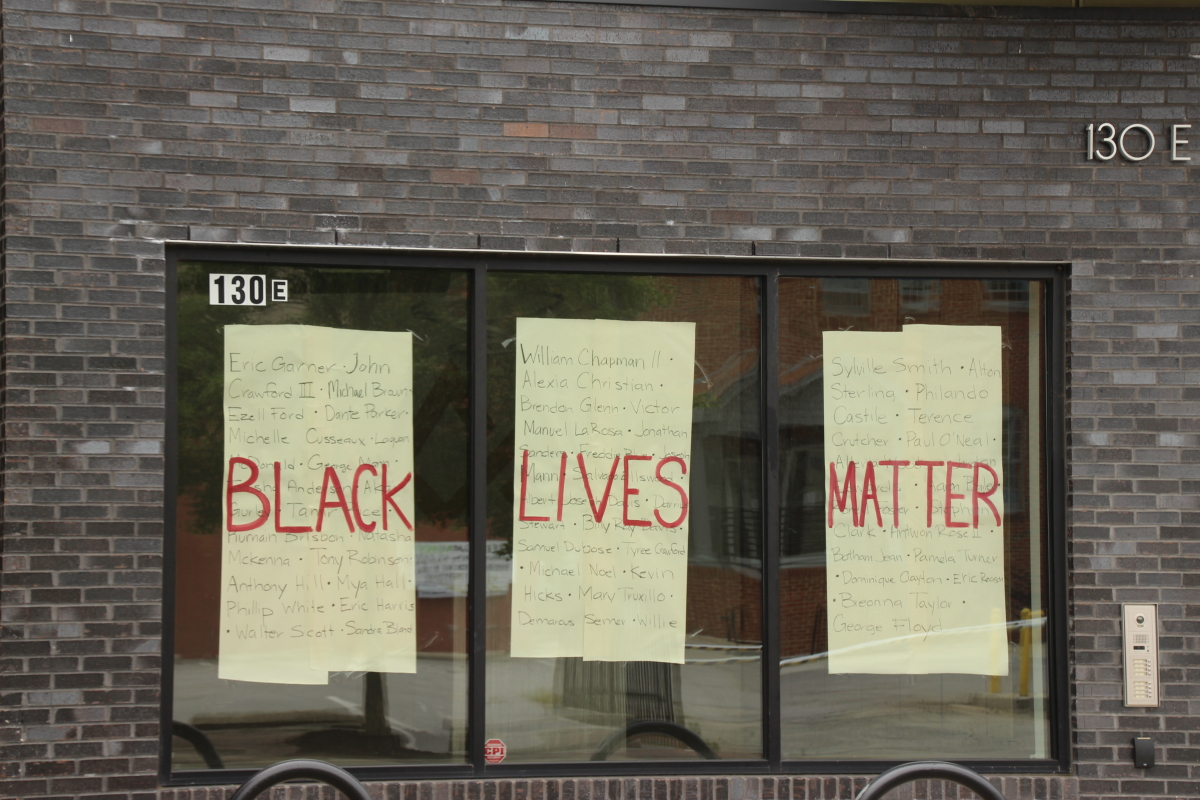 130 E
130 E
Eric Garner · John
Crawford III · Michael Brown ·
Ezell Ford · Dante Parker ·
Michelle Cusseaux · Laquan
McDonald · George Mann ·
Anderson · Akai
Gurley
BLACK
Rumain Brisbon · Natasha
Mckenna · Tony Robinson ·
Anthony Hill · Mya Hall ·
Phillip White · Eric Harris
· Walter Scott · Sandra Bland
William Chapman II ·
Alexia Christian ·
Brendon Glenn · Victor
Manuel LaRosa · Jonathan
Sanders · Freddie
Mann · Salvado Ellswood ·
Albert Joseph Davis
LIVES
Stewart · Billy Ray Davis ·
Samuel Dubose · Tyree Crawford
· Michael Noel · Kevin
Hicks · Mary Truxillo ·
Demarcus Semer · Willie
Sylville Smith · Alton
Sterling · Philando
Castile · Terence
Crutcher · Paul O'Neal ·
MATTER
Clark · Antwon Rose II ·
Botham Jean · Pamela Turner
· Dominique Clayton · Eric Reason
· Breonna Taylor ·
George Floyd
CPI